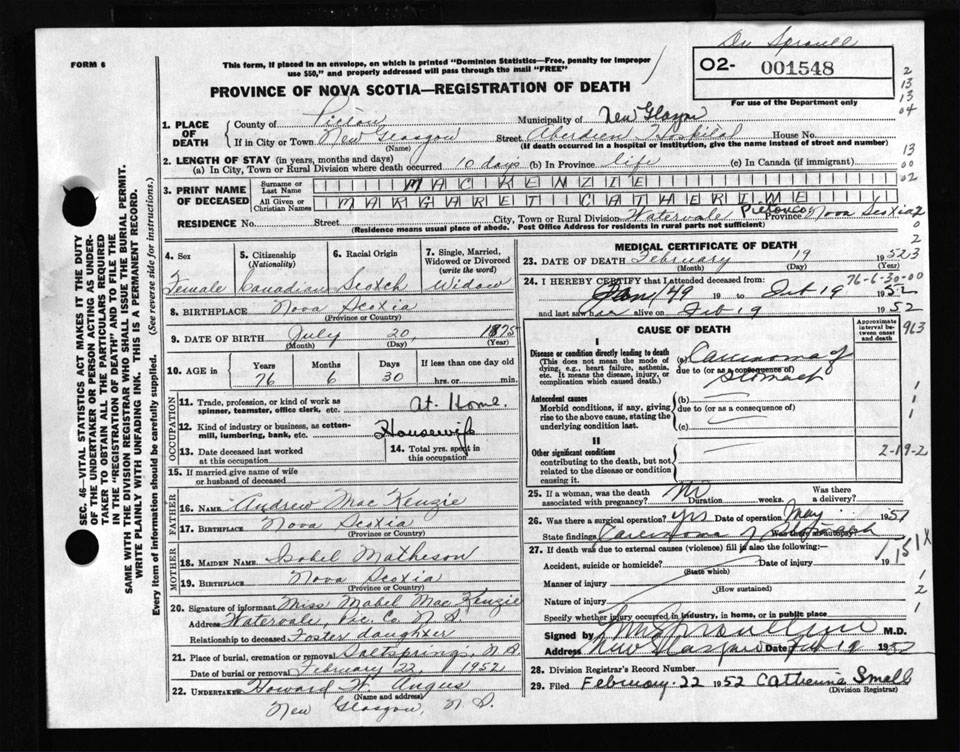 Dr Sproull
FORM 6
This form, if placed in an envelope, on which is printed "Dominion Statistics—Free, penalty for improper
use $50," and properly addressed will pass through the mail "FREE"
02- 001548
For use of the Department only
PROVINCE OF NOVA SCOTIA—REGISTRATION OF DEATH
2
13
13
04
13
00
02
2
0
2
3
1. PLACE OF DEATH
County of Pictou Municipality of New Glasgow
If in City or Town New Glasgow Street Aberdeen Hospital House No.
(Name) (If death occurred in a hospital or institution, give the name instead of street and number)
2. LENGTH OF STAY (in years, months and days)
(a) In City, Town or Rural Division where death occurred 10 days (b) In Province life (c) In Canada (if immigrant)
3. PRINT NAME OF DECEASED
Surname or Last Name MAC KENZIE
All Given or Christian Names MARGARET CATHERINE
RESIDENCE No. Street City, Town or Rural Division Watervale Pictou Co Province Nova Scotia
(Residence means usual place of abode. Post Office Address for residents in rural parts not sufficient)
SEC. 46—VITAL STATISTICS ACT MAKES IT THE DUTY
OF THE UNDERTAKER OR PERSON ACTING AS UNDER-
TAKER TO OBTAIN ALL THE PARTICULARS REQUIRED
IN THE "REGISTRATION OF DEATH" AND TO FILE THE
SAME WITH THE DIVISION REGISTRAR WHO SHALL ISSUE THE BURIAL PERMIT.
WRITE PLAINLY WITH UNFADING INK. THIS IS A PERMANENT RECORD.
Every item of information should be carefully supplied. (See reverse side for instructions.)
4. Sex
Female
5. Citizenship
(Nationality)
Canadian
6. Racial Origin
Scotch
7. Single, Married,
Widowed or Divorced
(write the word)
Widow
8. BIRTHPLACE Nova Scotia
(Province or Country)
9. DATE OF BIRTH July 20 1875
(Month) (Day) (Year)
10. AGE in
Years Months Days If less than one day old
76 6 30 hrs. or min.
OCCUPATION
11. Trade, profession, or kind of work as
spinner, teamster, office clerk, etc. At Home.
12. Kind of industry or business, as cotton-
mill, lumbering, bank, etc. Housewife
13. Date deceased last worked
at this occupation
14. Total yrs. spent in
this occupation
15. If married give name of wife
or husband of deceased
FATHER
16. NAME Andrew Mac Kenzie
17. BIRTHPLACE Nova Scotia
(Province or Country)
MOTHER
18. MAIDEN NAME Isobel Matheson
19. BIRTHPLACE Nova Scotia
(Province or Country)
20. Signature of informant Miss Mabel Mac Kenzie
Address Watervale, Pic. Co. N.S.
Relationship to deceased Foster daughter
21. Place of burial, cremation or removal Saltsprings, N.S.
Date of burial or removal February 22 1952
22. UNDERTAKER Howard W. Angus
(Name and address)
New Glasgow, N.S.
MEDICAL CERTIFICATE OF DEATH
23. DATE OF DEATH February 19 1952
(Month) (Day) (Year)
76-6-30-00
24. I HEREBY CERTIFY that I attended deceased from:
Jan/49 to Feb 19 1952
and last saw her alive on Feb 19 1952
CAUSE OF DEATH
Approximate
interval be-
tween onset
and death
I
Disease or condition directly leading to death
(This does not mean the mode of
dying, e.g., heart failure, asthenia,
etc. It means the disease, injury, or
complication which caused death.
(a) Carcinoma of
due to (or as a consequence of)
stomach
Antecedent causes
Morbid conditions, if any, giving
rise to the above cause, stating the
underlying condition last.
(b)
due to (or as a consequence of)
(c)
II
Other significant conditions
contributing to the death, but not
related to the disease or condition
causing it.
1
1
1
2-19-2
25. If a woman, was the death
associated with pregnancy? No Duration weeks. Was there
a delivery?
26. Was there a surgical operation? yes Date of operation May 1951
State findings Carcinoma of Stomach Was there an autopsy?
27. If death was due to external causes (violence) fill in also the following:—
151X
Accident, suicide or homicide? Date of injury 19
(State which)
Manner of injury
(How sustained)
Nature of injury
Specify whether injury occurred in industry, in home, or in public place
1
2
1
Signed by M.D.
Address New Glasgow Date Feb 19 1952
28. Division Registrar's Record Number
29. Filed February 22 1952 Catherine Small
(Division Registrar)